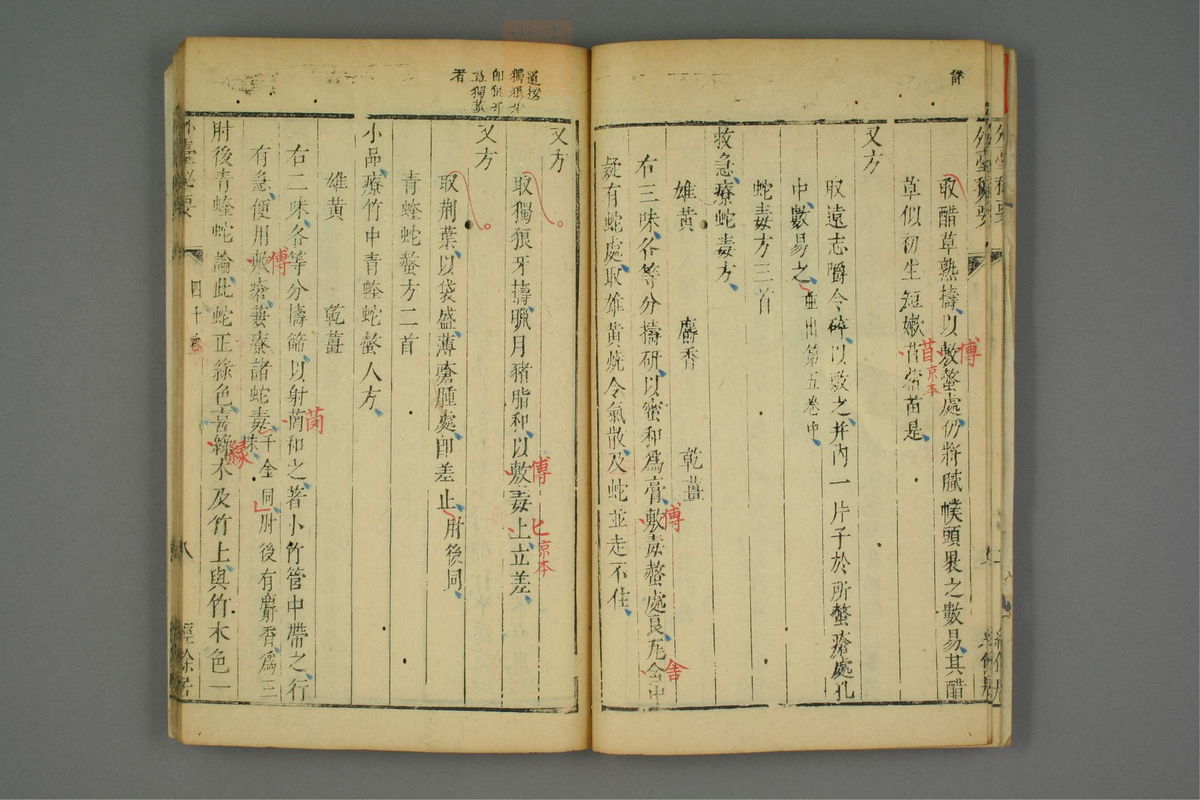 取醋草熟擣以敷螫處仍將膩幞頭裹之數易其醋
草似初生短嫩苜蓿苗是
又方
取遠志嚼令碎以敷之并內一片子於所螫瘡處孔
中數易之重出第五卷中
蛇毒方三首
救急療蛇毒方
雄黃 麝香 乾薑
右三味各等分擣研以蜜和爲膏敷毒螫處良
疑有蛇處取雄黃燒令氣散及蛇並走不住
又方
取獨狼牙擣臘月豬脂和以敷毒上立差
又方
取荊葉以袋盛薄瘡腫處即差止肘後同
青蝰蛇螫方二首
小品療竹中青蝰蛇螫人方
雄黃 乾薑
右二味各等分擣篩以射和之著小竹管中帶之行
有急便用敷瘡兼療諸蛇毒千金同肘後有麝香爲三味
肘後青蝰蛇論此蛇正綠色喜緣木及竹上與竹木色一
傅
傅
舍
傅
京本
傅
茵
緣
外臺秘要
四十卷
八
經餘居